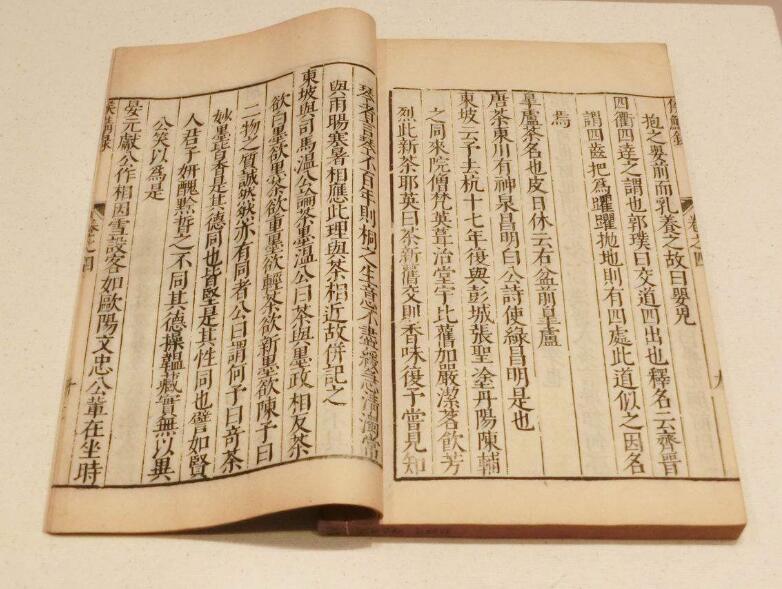 侯鯖錄 卷之四 九
抱之嬰前而乳養之故曰嬰兒
四衢四達之謂也郭璞曰交道四出也釋名云齊晉
謂四齒把爲躍躍抛地則有四處此道似之因名
焉
皐盧茶名也皮日休云石盆前皐盧
唐茶東川有神泉昌明白公詩使綠昌明是也
東坡云予去杭十七年復與彭城張聖塗丹陽陳輔
之同來院僧梵英葺治堂宇比舊加嚴潔茗飲芳
烈此新茶耶英曰茶新舊交則香味復予嘗見知
琴者言琴不百年則桐之生意不盡緩急清濁常
與雨暘寒暑相應此理與茶相近故併記之
東坡與司馬溫公論茶墨溫公曰茶與墨政相反茶
欲白墨欲黑茶欲重墨欲輕茶欲新墨欲陳予曰
二物之質誠然然亦有同者公曰謂何予曰奇茶
妙墨皆香是其德同也皆堅是其性同也譬如賢
人君子妍醜黔晳之不同其德操韞藏實無以異
公笑以爲是
晏元獻公作相因雪設客如歐陽文忠公輩在坐時
侯鯖錄 卷之四 十